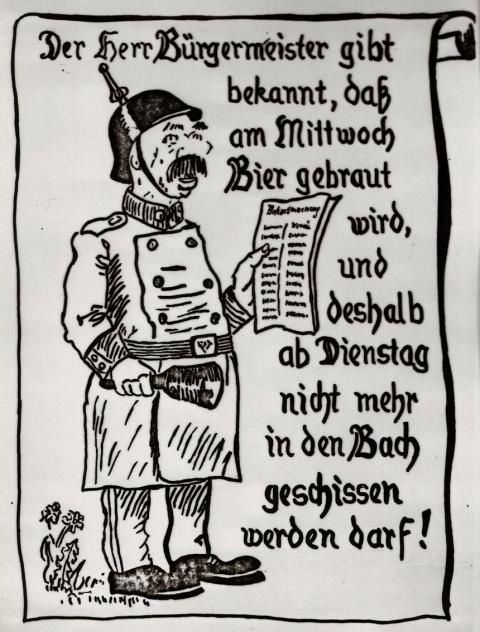 Der Herr Bürgermeister gibt
bekannt, daß
am Mittwoch
Bier gebraut
wird,
und
deshalb
ab Dienstag
nicht mehr
in den Bach
geschissen
werden darf!
Bekanntmachung